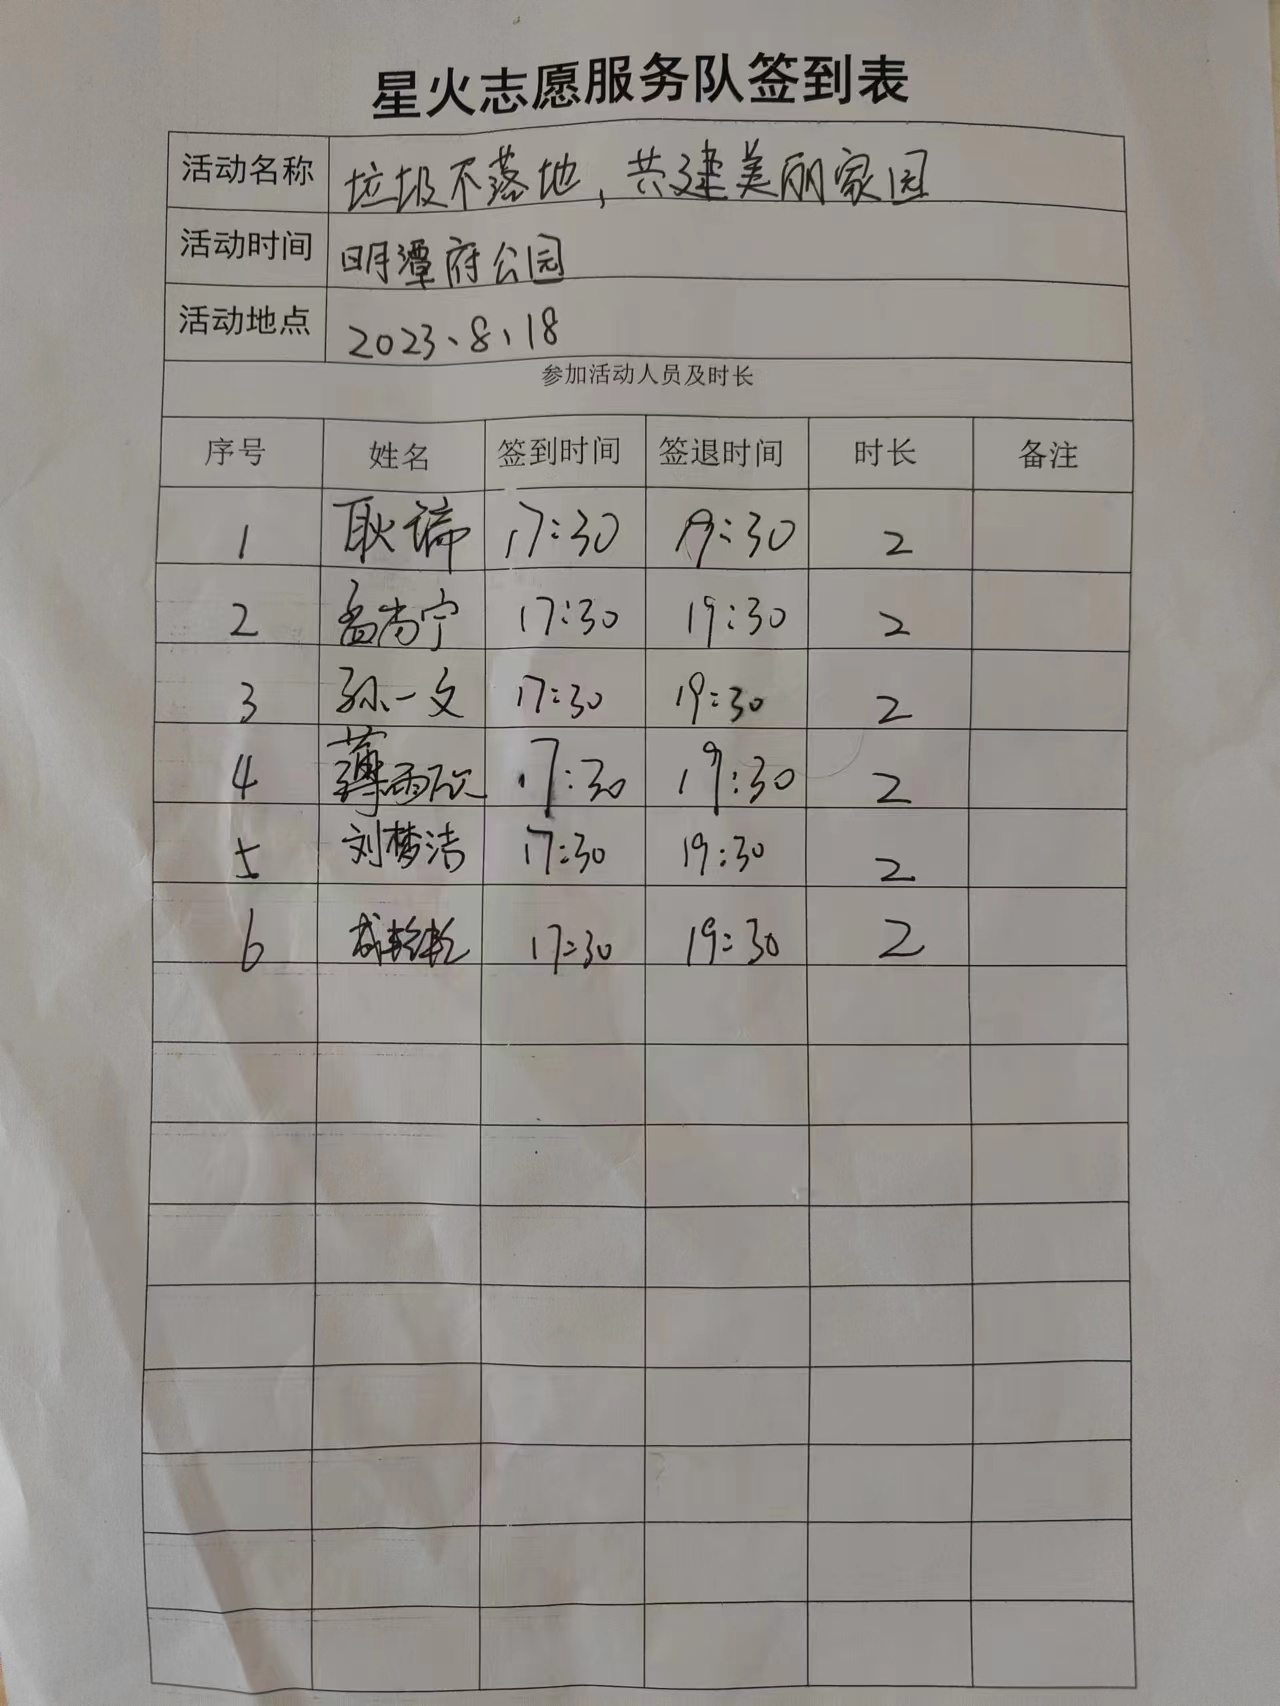 星火志愿服务队签到表
活动名称 垃圾不落地，共建美丽家园
活动时间 明潭府公园
活动地点 2023、8、18
参加活动人员及时长
序号 姓名 签到时间 签退时间 时长 备注
1 耿 17:30 19:30 2
2 孟尚宁 17:30 19:30 2
3 孙一文 17:30 19:30 2
4 薄雨欣 17:30 19:30 2
5 刘梦洁 17:30 19:30 2
6 17:30 19:30 2